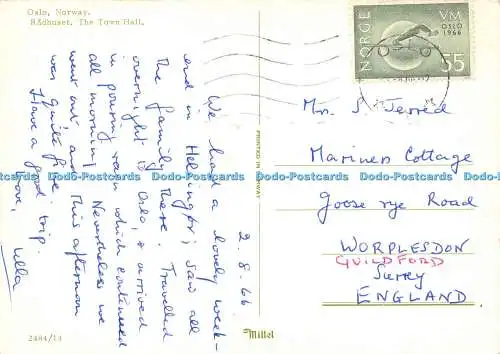 Oslo, Norway.
Rådhuset. The Town Hall.
2.8.66
We had a lovely week-
end in Helsingfors, saw all
the family there. Travelled
overnight to Oslo, & arrived
in pouring rain which continued
all morning. Nevertheless we
went out and this afternoon
was quite fine.
Have a good trip.
Love, Ulla
PRINTED IN NORWAY
Mittet
2484/13
NORGE
VM
OSLO
1966
55
Mrs S Jerred
Mariners Cottage
Goose rye Road
WORPLESDON
GUILDFORD
Surrey
ENGLAND
Dodo-Postcards Dodo-Postcards Dodo-Postcards Dodo-Postcards Dodo-Postcards